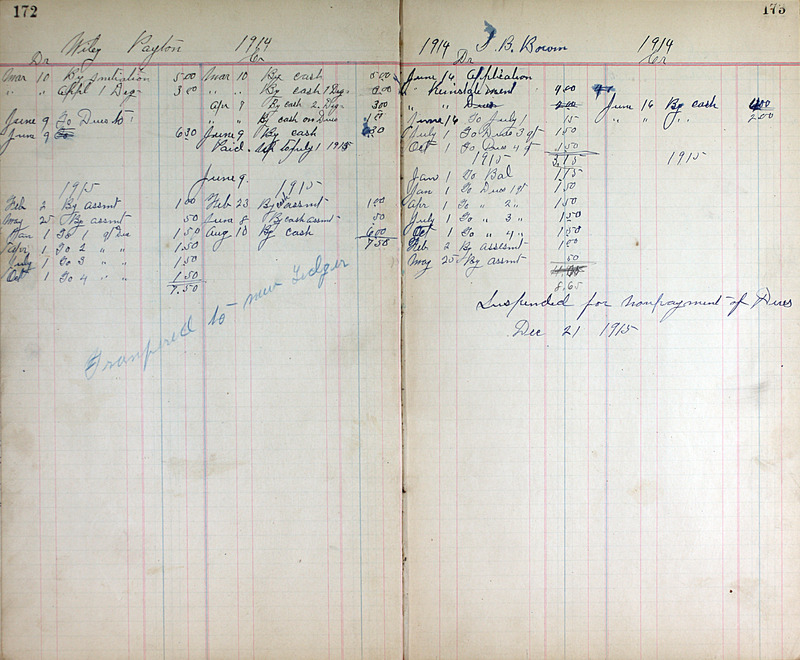 172
Wiley Payton 1914
Dr Cr
Mar 10 By Initiation 5 00 Mar 10 By cash 5 00
" " Appl 1 Deg 3 00 " " By cash 1 Deg. 3 00
Apr 9 By cash 2 Deg. 3 00
June 9 To Dues to " " By cash on Dues
June 9 To 6 30 June 9 By cash 6 30
Paid up to July 1 1915
June 9
1915 1915
Feb 2 By assmt 1 00 Feb 23 By assmt 1 00
May 25 By assmt 50 June 8 By cash assmt 50
Jan 1 To 1 qt Due 1.50 Aug 10 By cash 6 00
Apr 1 To 2 " " 1.50 7.50
July 1 To 3 " " 1.50
Oct 1 To 4 " " 1.50
7.50
Transferred to new Ledger
173
1914 J. B. Bowm 1914
Dr Cr
June 16 Application
" Reinstatement 4.00
" " Dues 2.00 June 16 By cash 4 00
June 16 To July 1 15 " " " " 2.00
July 1 To Dues 3 qt 1.50
Oct 1 To Dues 4 qt 1.50
1915 3.15 1915
Jan 1 To Bal 1.15
Jan 1 To Dues 1 qt 1.50
Apr 1 To " 2 " 1.50
July 1 To " 3 " 1.50
Oct 1 To " 4 " 1.50
Feb 2 By assessmt 1 00
May 25 By assmt 50
8.65
Suspended for nonpayment of Dues
Dec 21 1915